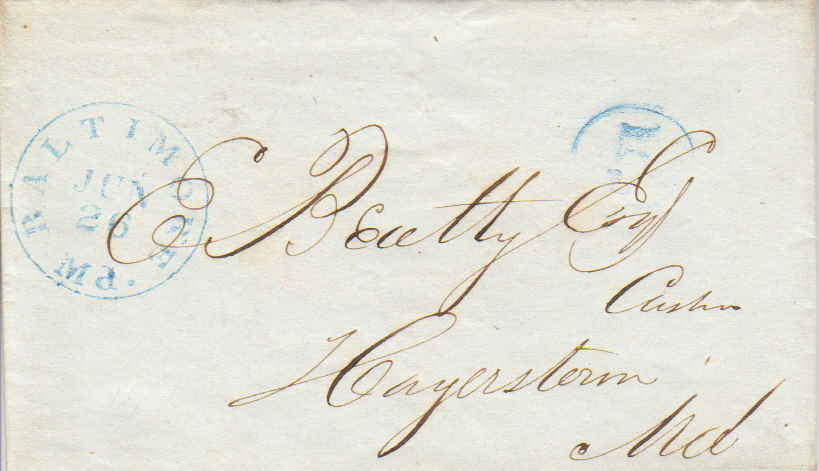 BALTIMORE Md.
JUN
26
E Beatty Esqr
Cashr
Hagerstown
Md